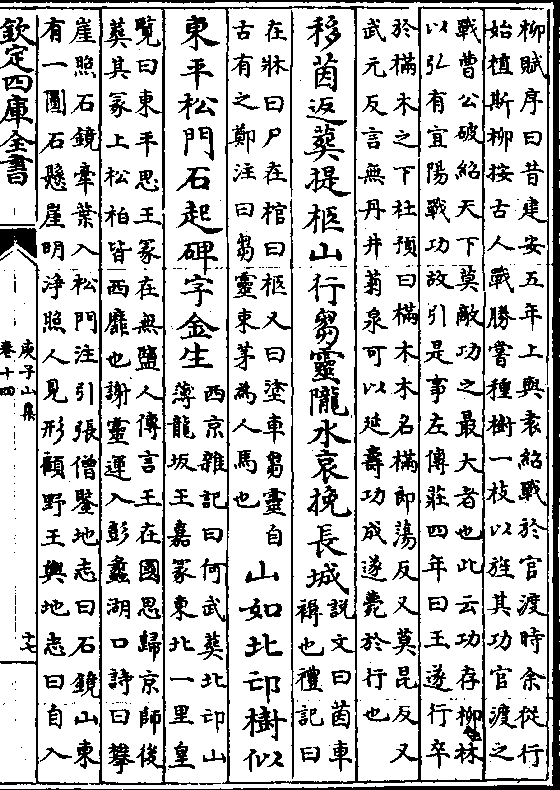 柳賦序曰昔建安五年上與袁紹戰於官渡時余從行
始植斯柳按古人戰勝嘗種樹一枝以旌其功官渡之
戰曹公破紹天下莫敵功之最大者也此云功存柳林
以弘有宜陽戰功故引是事左傳莊四年曰王遂行卒
於樠木之下杜預曰樠木木名樠郎蕩反又莫昆反又
武元反言無丹井菊泉可以延壽功成遂薨於行也
移茵返葬提柩山行芻靈隴水哀挽長城
說文曰茵車
褥也禮記曰
在牀曰尸在棺曰柩又曰塗車芻靈自
古有之鄭注曰芻靈束茅為人馬也
山如北邙樹似
東平松門石起碑字金生
西京雜記曰何武葬北邙山
薄龍坂王嘉冢東北一里皇
覽曰東平思王冢在無鹽人傳言王在國思歸京師後
葬其冢上松柏皆西靡也謝靈運入彭蠡湖口詩曰攀
崖照石鏡牽葉入松門注引張僧鑒地志曰石鏡山東
有一圓石懸崖明淨照人見形顧野王輿地志曰自入
欽定四庫全書
庾子山集
卷十四
十七